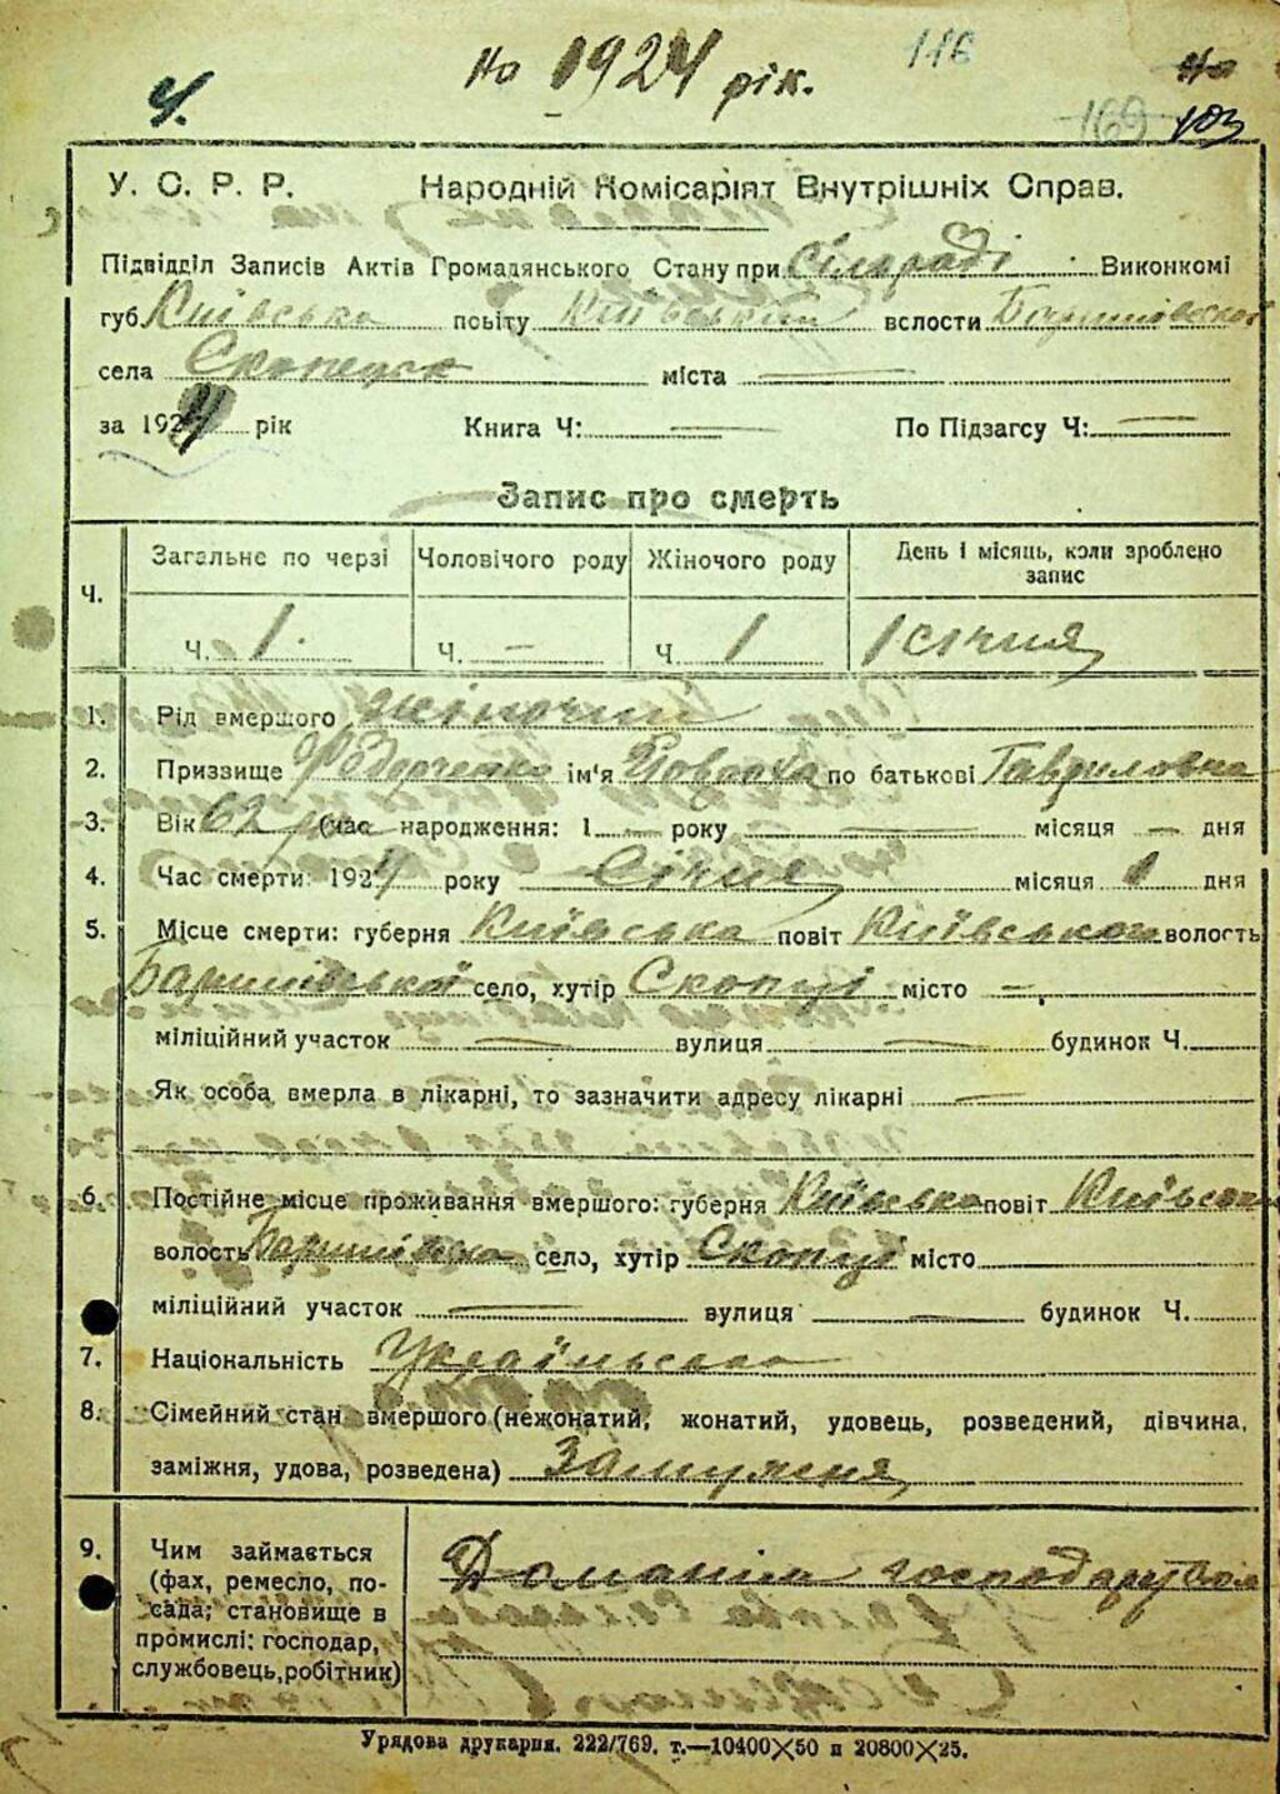 На 1924 рік.
116
4.
На
169 103
У. С. Р. Р. Народній Комісаріят Внутрішніх Справ.
Підвідділ Записів Актів Громадянського Стану при Сільраді Виконкомі
губ. Київська повіту Київський волости Баришівської
села Скопецьк міста —
за 1924 рік Книга Ч: — По Підзагсу Ч: —
Запис про смерть
Ч. Загальне по черзі Чоловічого роду Жіночого роду День і місяць, коли зроблено запис
Ч. 1. Ч. — Ч. 1 1 січня
1. Рід вмершого жіночий
2. Призвище Федорченко ім'я по батькові Гавриловна
3. Вік 62 р (час народження: 1 — року — місяця — дня
4. Час смерти: 1924 року Січня місяця 1 дня
5. Місце смерти: губерня Київська повіт Київського волость
Баришівської село, хутір Скопці місто —
міліційний участок — вулиця — будинок Ч.
Як особа вмерла в лікарні, то зазначити адресу лікарні —
6. Постійне місце проживання вмершого: губерня Київська повіт Київськ
волость Баришівська село, хутір Скопці місто
міліційний участок — вулиця — будинок Ч.
7. Національність Українська
8. Сімейний стан вмершого (нежонатий, жонатий, удовець, розведений, дівчина,
заміжня, удова, розведена) Замужня
9. Чим займається
(фах, ремесло, по-
сада; становище в
промислі: господар,
службовець, робітник)
Домашня господарувала
Урядова друкарня. 222/769. т.—10400×50 п 20800×25.